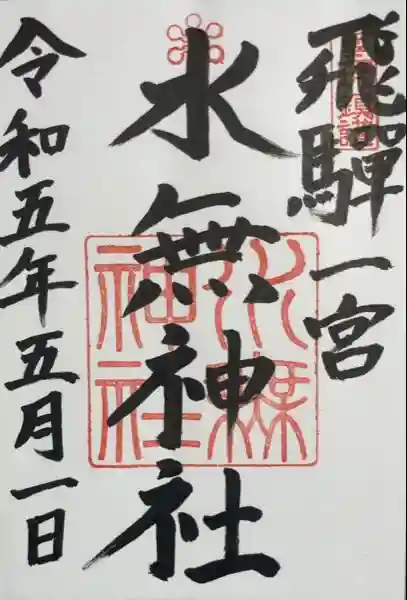 飛騨一宮
水無神社
令和五年五月一日
水無神社